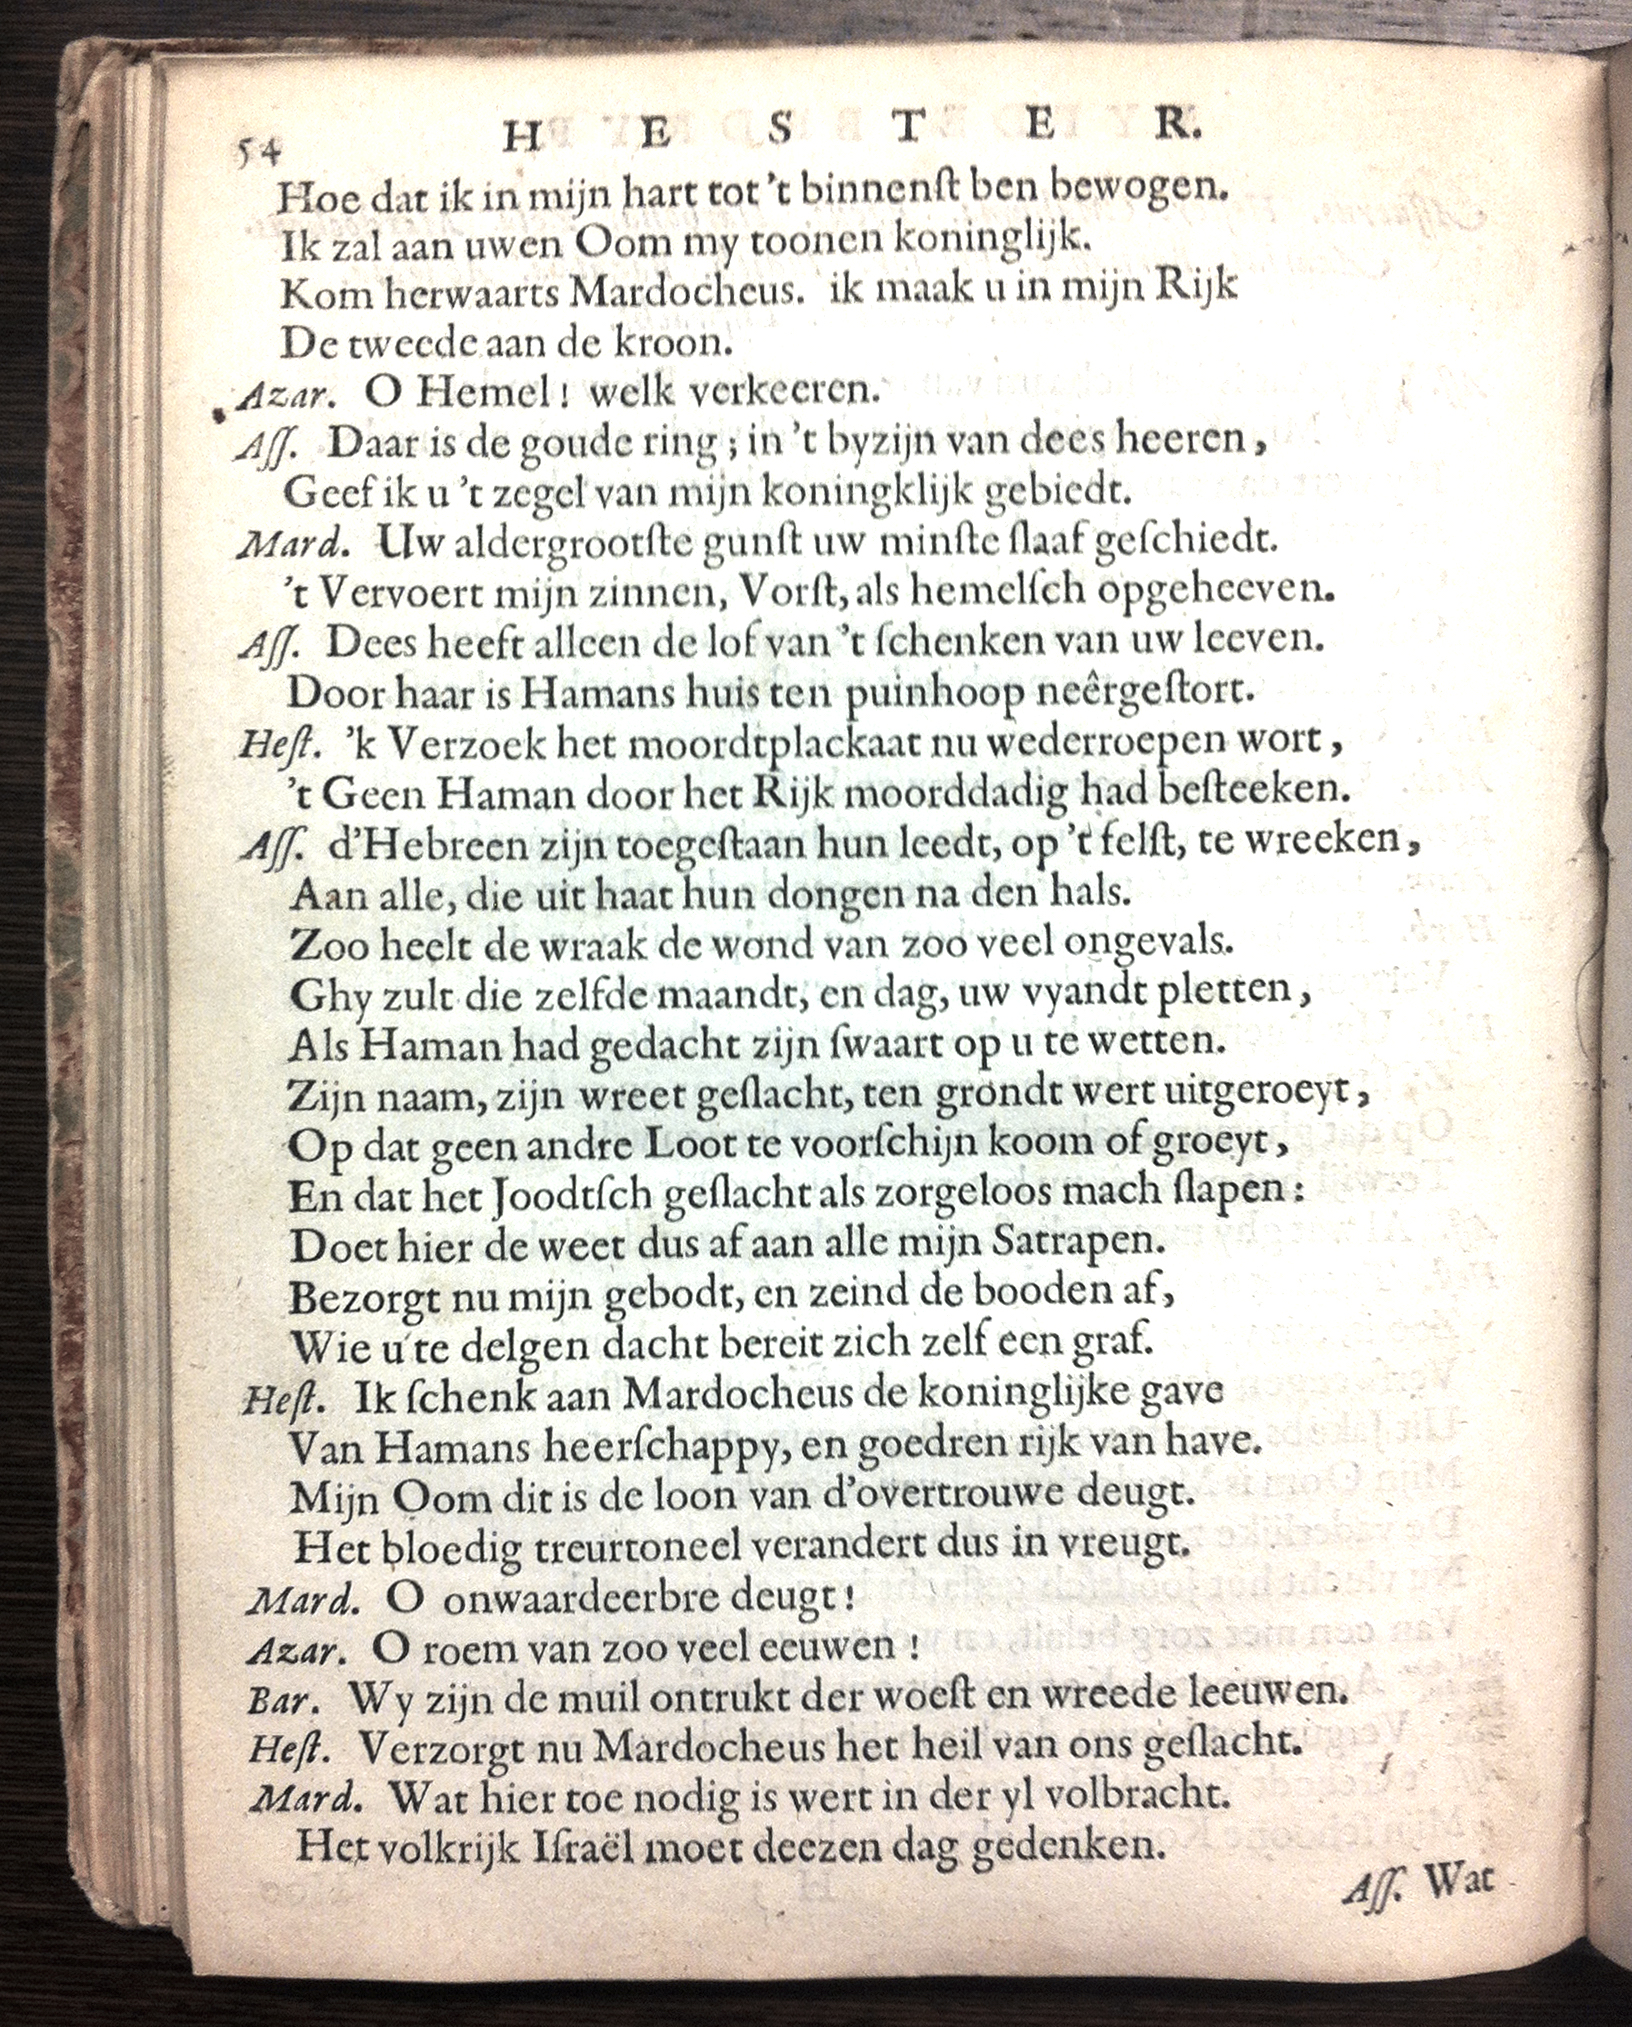 54 H E S T E R.
Hoe dat ik in mijn hart tot 't binnenſt ben bewogen.
Ik zal aan uwen Oom my toonen koninglijk.
Kom herwaarts Mardocheus. ik maak u in mijn Rijk
De tweede aan de kroon.
Azar. O Hemel! welk verkeeren.
Aſſ. Daar is de goude ring; in 't byzijn van dees heeren,
Geef ik u 't zegel van mijn koningklijk gebiedt.
Mard. Uw aldergrootſte gunſt uw minſte ſlaaf geſchiedt.
't Vervoert mijn zinnen, Vorſt, als hemelſch opgeheeven.
Aſſ. Dees heeft alleen de lof van 't ſchenken van uw leeven.
Door haar is Hamans huis ten puinhoop neêrgeſtort.
Heſt. 'k Verzoek het moordtplackaat nu wederroepen wort,
't Geen Haman door het Rijk moorddadig had beſteeken.
Aſſ. d'Hebreen zijn toegeſtaan hun leedt, op 't felſt, te wreeken,
Aan alle, die uit haat hun dongen na den hals.
Zoo heelt de wraak de wond van zoo veel ongevals.
Ghy zult die zelfde maandt, en dag, uw vyandt pletten,
Als Haman had gedacht zijn ſwaart op u te wetten.
Zijn naam, zijn wreet geſlacht, ten grondt wert uitgeroeyt,
Op dat geen andre Loot te voorſchijn koom of groeyt,
En dat het Joodtſch geſlacht als zorgeloos mach ſlapen:
Doet hier de weet dus af aan alle mijn Satrapen.
Bezorgt nu mijn gebodt, en zeind de booden af,
Wie u te delgen dacht bereit zich zelf een graf.
Heſt. Ik ſchenk aan Mardocheus de koninglijke gave
Van Hamans heerſchappy, en goedren rijk van have.
Mijn Oom dit is de loon van d'overtrouwe deugt.
Het bloedig treurtoneel verandert dus in vreugt.
Mard. O onwaardeerbre deugt!
Azar. O roem van zoo veel eeuwen!
Bar. Wy zijn de muil ontrukt der woeſt en wreede leeuwen.
Heſt. Verzorgt nu Mardocheus het heil van ons geſlacht.
Mard. Wat hier toe nodig is wert in der yl volbracht.
Het volkrijk Iſraël moet deezen dag gedenken.
Aſſ. Wat